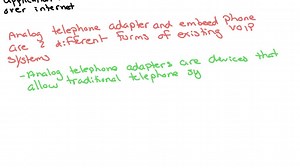 application
over internet
Analog telephone adapter and embeed phone
are 2 different forms of existing VOIP
systems
- Analog telephone adapters are devices that
allow traditional telephone sy